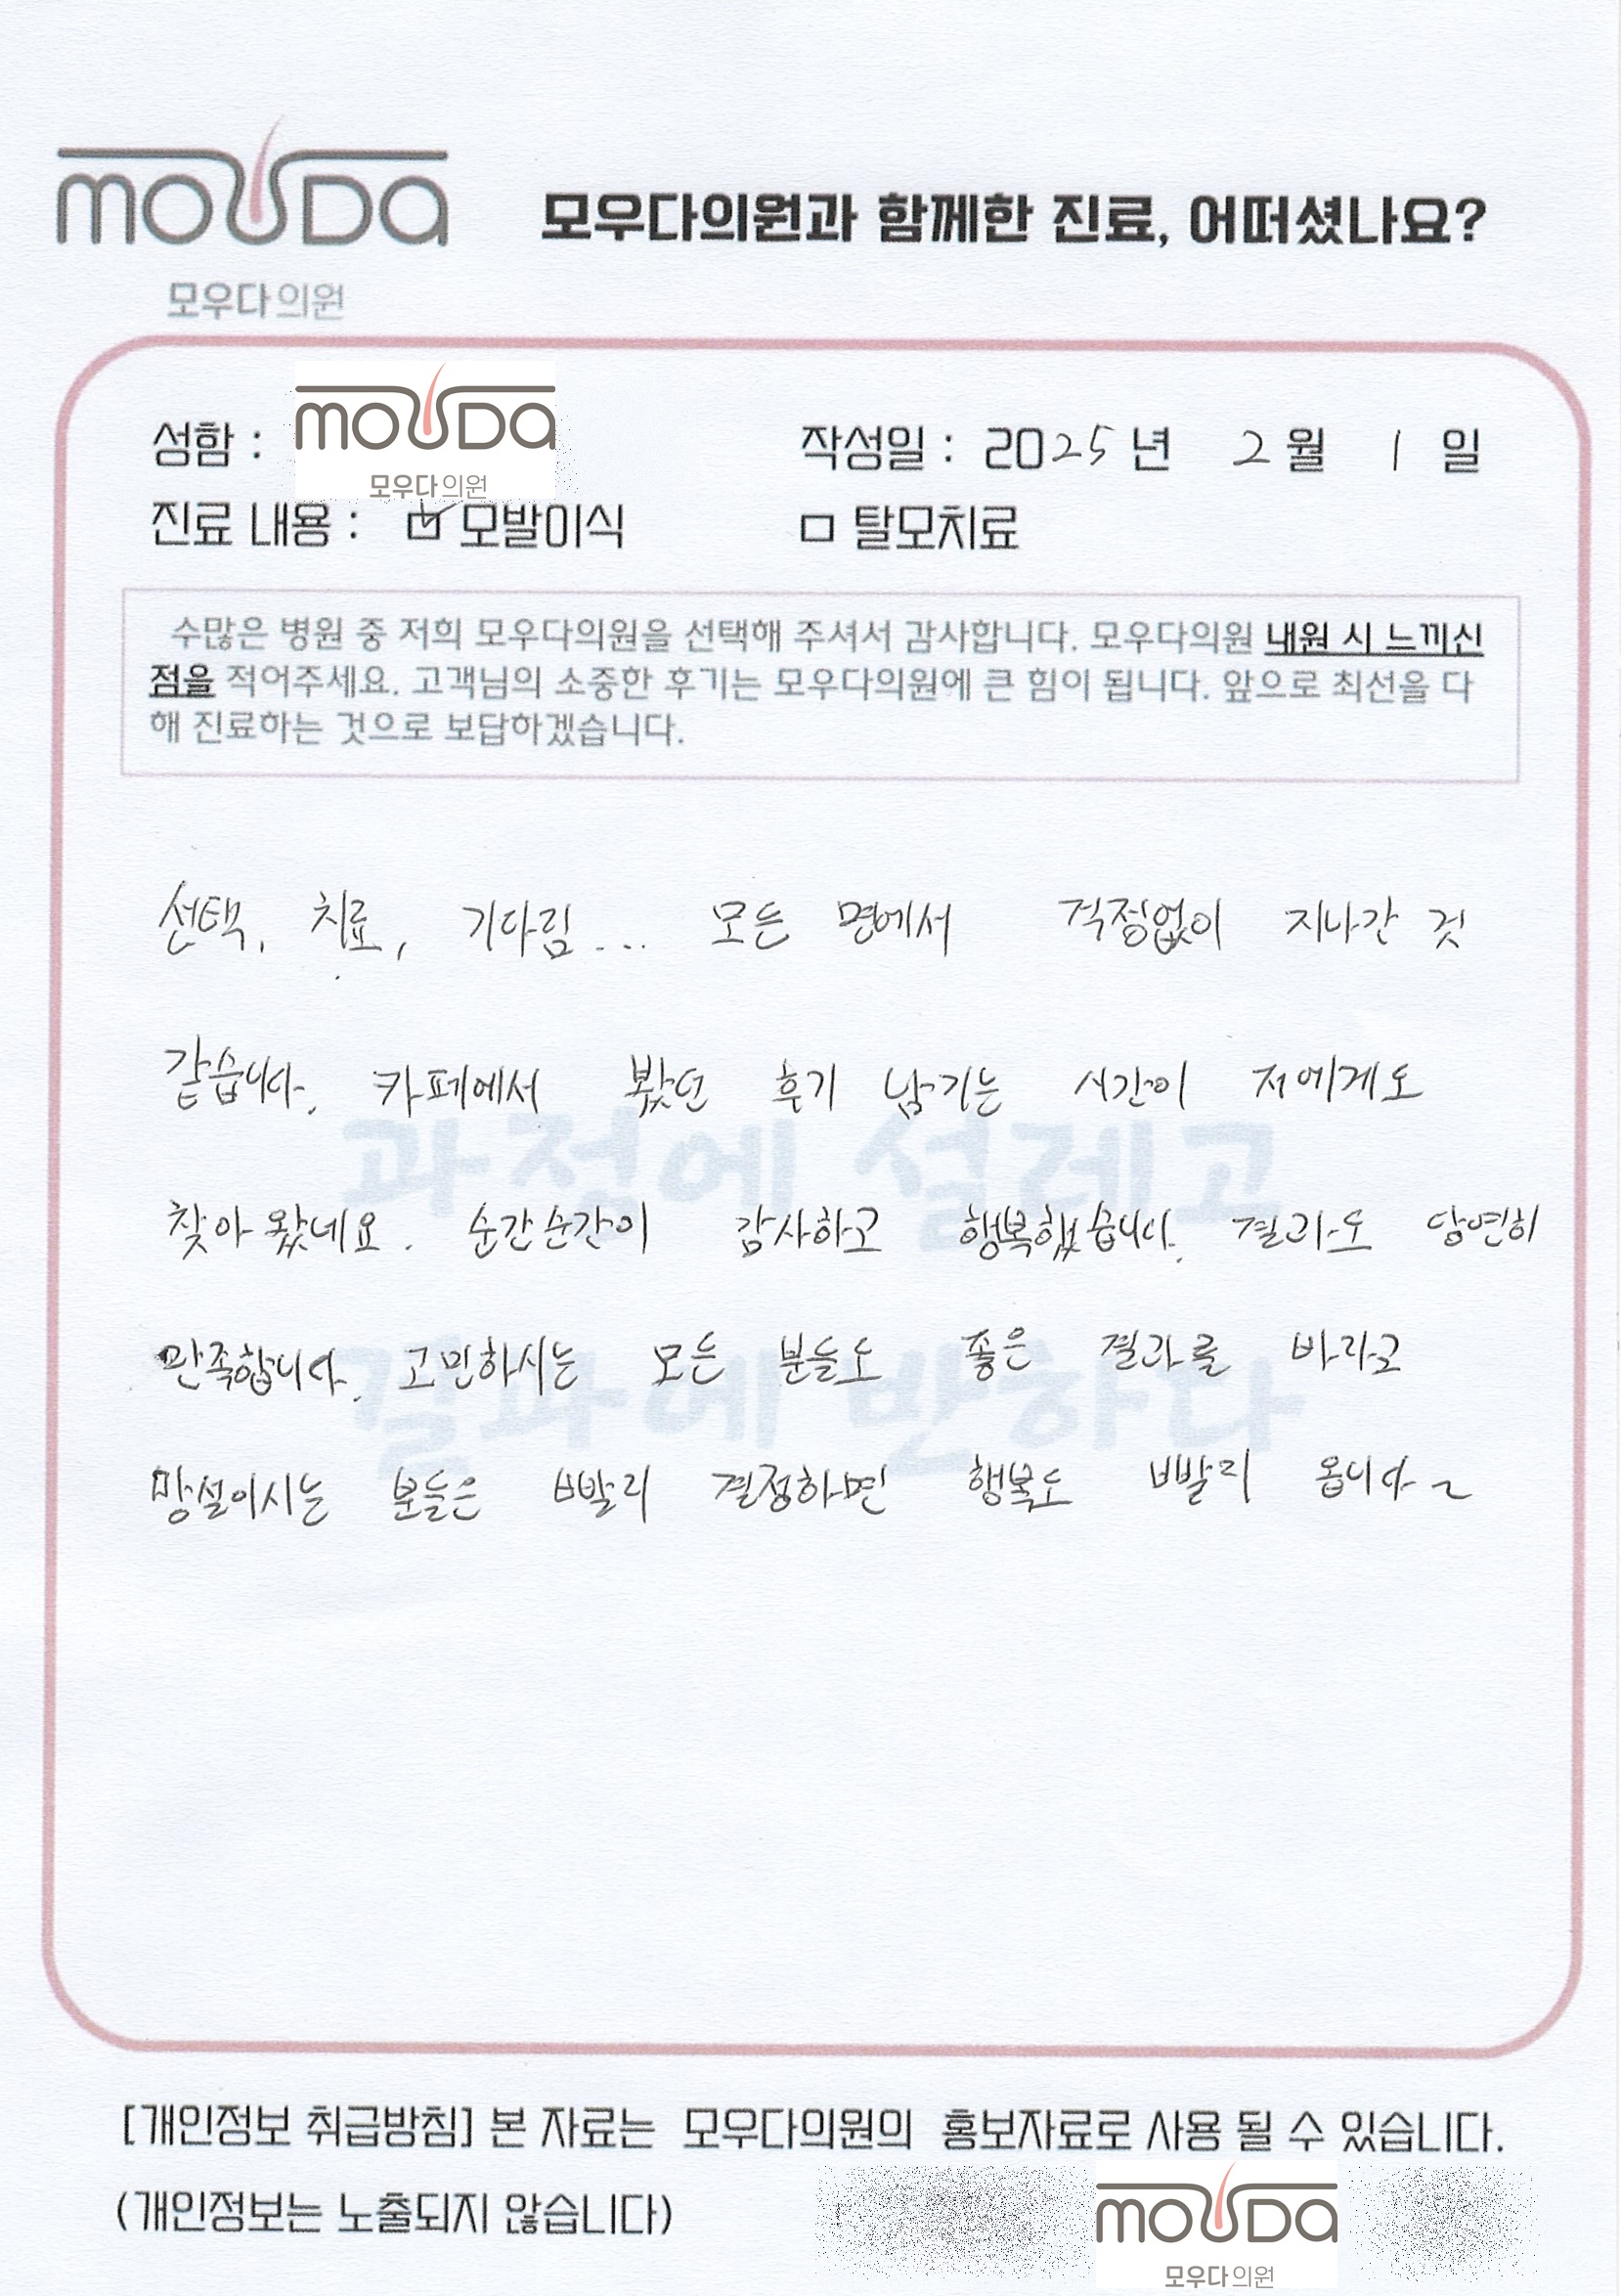 mouDa
모우다의원과 함께한 진료, 어떠셨나요?
모우다의원
성함 : mouDa
모우다의원
작성일 : 2025 년 2 월 1 일
진료 내용 : ☑ 모발이식 □ 탈모치료
수많은 병원 중 저희 모우다의원을 선택해 주셔서 감사합니다. 모우다의원 내원 시 느끼신
점을 적어주세요. 고객님의 소중한 후기는 모우다의원에 큰 힘이 됩니다. 앞으로 최선을 다
해 진료하는 것으로 보답하겠습니다.
선택, 치료, 기다림... 모든 면에서 걱정없이 지나간 것
같습니다. 카페에서 봤던 후기 남기는 시간이 저에게도
과정에 설레고
찾아왔네요. 순간순간이 감사하고 행복했습니다. 결과도 당연히
만족합니다. 고민하시는 모든 분들도 좋은 결과를 바라고
결과에 반하다
망설이시는 분들은 빨리 결정하면 행복도 빨리 옵니다~
[개인정보 취급방침] 본 자료는 모우다의원의 홍보자료로 사용 될 수 있습니다.
(개인정보는 노출되지 않습니다)
mouDa
모우다의원